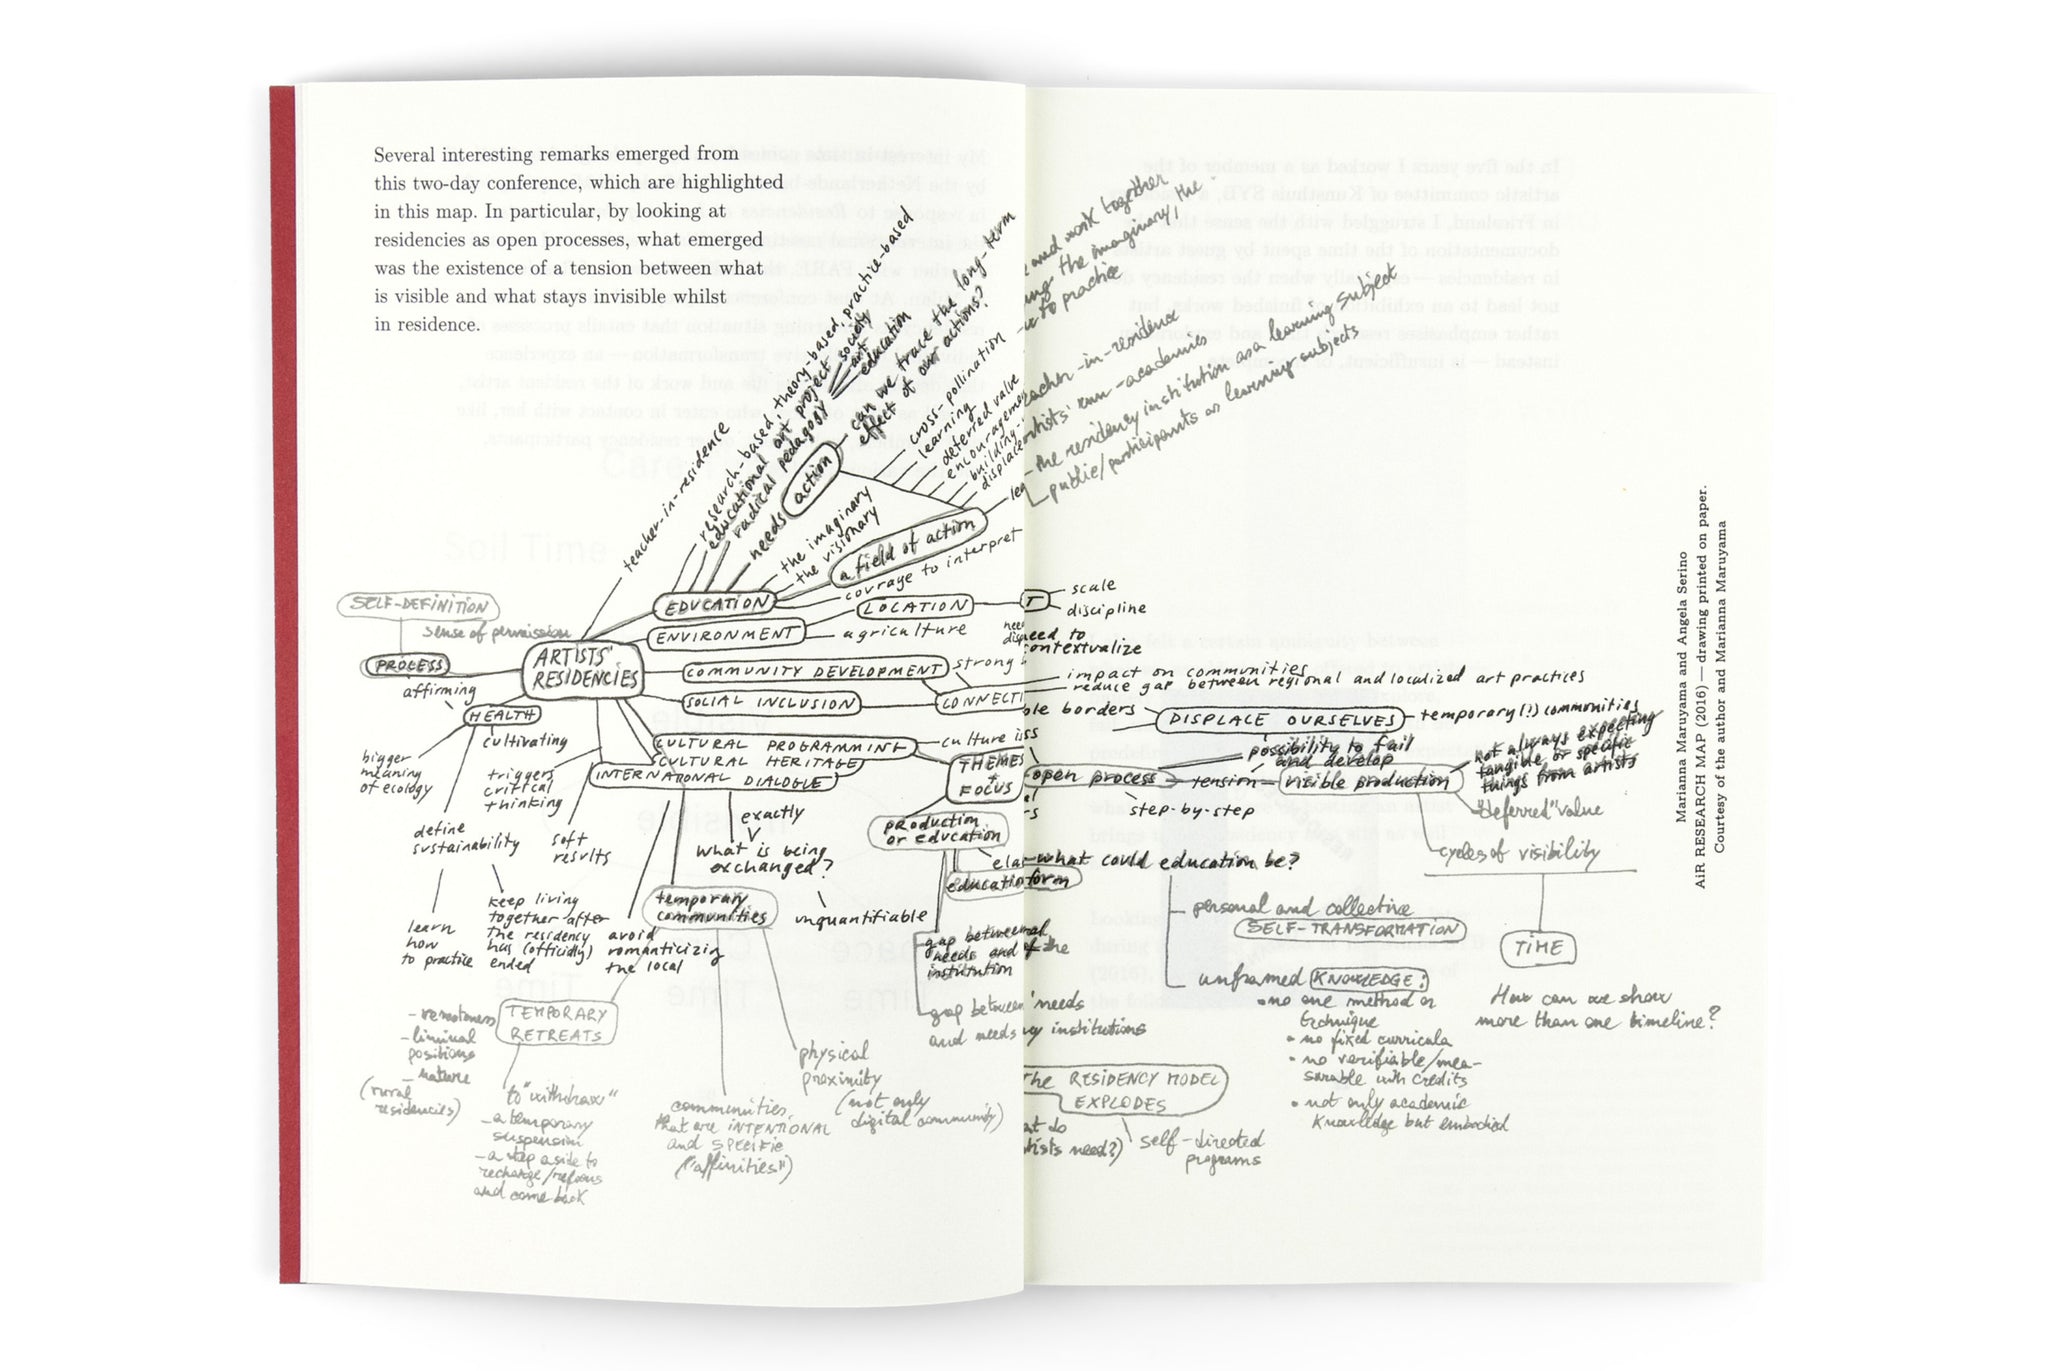 Several interesting remarks emerged from
this two-day conference, which are highlighted
in this map. In particular, by looking at
residencies as open processes, what emerged
was the existence of a tension between what
is visible and what stays invisible whilst
in residence.
teacher-in-residence
research-based, theory-based, practice-based
educational art project
society
art
education
radical pedagogy
needs
action
can we trace the long-term
effect of our actions?
cross-pollination
learning
deferred value
encouragemen
building-
displace
the imaginary
the visionary
a field of action
courage to interpret
EDUCATION
LOCATION
ENVIRONMENT
agriculture
SELF-DEFINITION
sense of permission
PROCESS
ARTISTS'
RESIDENCIES
COMMUNITY DEVELOPMENT
strong
SOCIAL INCLUSION
CONNECTI
affirming
HEALTH
cultivating
bigger
meaning
of ecology
triggers
critical
thinking
CULTURAL PROGRAMMING
CULTURAL HERITAGE
INTERNATIONAL DIALOGUE
culture is
THEMES
+
FOCUS
define
sustainability
soft
results
exactly
what is being
exchanged?
production
or education
education
learn
how
to practice
keep living
together after
the residency
has (officially)
ended
avoid
romanticizing
the local
temporary
communities
unquantifiable
gap between
needs and
institution
gap between
and needs
TEMPORARY
RETREATS
- remoteness
- liminal
positions
- nature
(rural
residencies)
to "withdraw"
- a temporary
suspension
- a step aside to
recharge/refocus
and come back
communities
that are INTENTIONAL
and SPECIFIC
("affinities")
physical
proximity
(not only
digital community)
and work together
the imaginary, the
to practice
eacher-in-residence
rtists' run-academies
the residency institution as a learning subject
public/participants as learning subjects
T
scale
discipline
need to
contextualize
impact on communities
reduce gap between regional and localized art practices
ble borders
DISPLACE OURSELVES
temporary(!) communities
possibility to fail
and develop
open process
tension
visible production
step-by-step
not always expecting
tangible or specific
things from artists
"deferred" value
cycles of visibility
what could education be?
form
personal and collective
SELF-TRANSFORMATION
unframed KNOWLEDGE:
• no one method or
technique
• no fixed curricula
• no verifiable/mea-
surable with credits
• not only academic
knowledge but embodied
TIME
How can we show
more than one timeline?
of the
needs
institutions
The RESIDENCY MODEL
EXPLODES
at do
tists need?)
self-directed
programs
Marianna Maruyama and Angela Serino
AiR RESEARCH MAP (2016) — drawing printed on paper.
Courtesy of the author and Marianna Maruyama